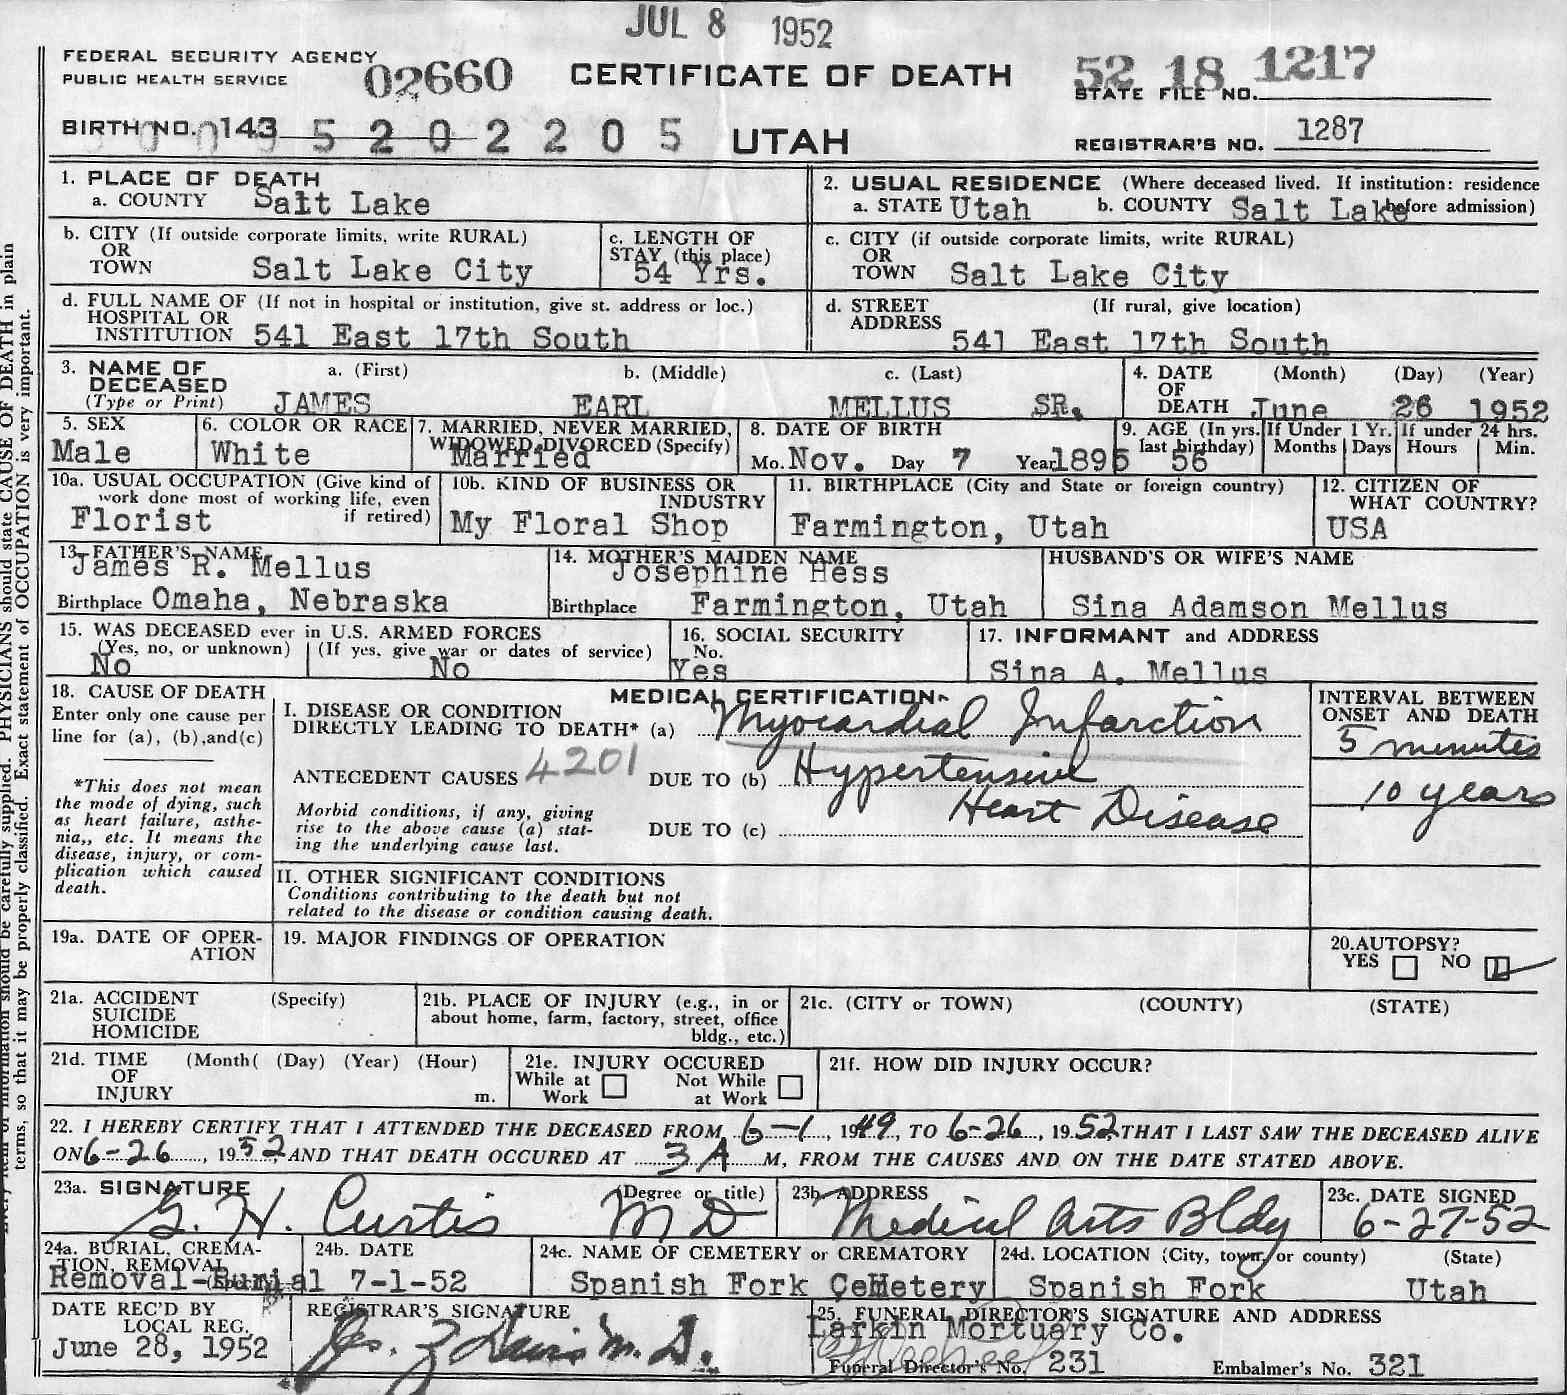 JUL 8 1952
FEDERAL SECURITY AGENCY
PUBLIC HEALTH SERVICE
02660
CERTIFICATE OF DEATH
52 18 1217
STATE FILE NO.
BIRTH NO. 143 5 2 0 2 2 0 5
UTAH
REGISTRAR'S NO. 1287
1. PLACE OF DEATH
a. COUNTY Salt Lake
2. USUAL RESIDENCE (Where deceased lived. If institution: residence
a. STATE Utah b. COUNTY Salt Lake before admission)
b. CITY (If outside corporate limits, write RURAL)
OR
TOWN Salt Lake City
c. LENGTH OF
STAY (this place)
54 Yrs.
c. CITY (if outside corporate limits, write RURAL)
OR
TOWN Salt Lake City
d. FULL NAME OF (If not in hospital or institution, give st. address or loc.)
HOSPITAL OR
INSTITUTION 541 East 17th South
d. STREET (If rural, give location)
ADDRESS 541 East 17th South
3. NAME OF a. (First) b. (Middle) c. (Last)
DECEASED
(Type or Print) JAMES EARL MELLUS SR.
4. DATE (Month) (Day) (Year)
OF
DEATH June 26 1952
5. SEX
Male
6. COLOR OR RACE
White
7. MARRIED, NEVER MARRIED,
WIDOWED, DIVORCED (Specify)
Married
8. DATE OF BIRTH
Mo. Nov. Day 7 Year 1895
9. AGE (In yrs.
last birthday) 56
If Under 1 Yr.
Months Days
If under 24 hrs.
Hours Min.
10a. USUAL OCCUPATION (Give kind of
work done most of working life, even
if retired)
Florist
10b. KIND OF BUSINESS OR
INDUSTRY
My Floral Shop
11. BIRTHPLACE (City and State or foreign country)
Farmington, Utah
12. CITIZEN OF
WHAT COUNTRY?
USA
13. FATHER'S NAME
James R. Mellus
Birthplace Omaha, Nebraska
14. MOTHER'S MAIDEN NAME
Josephine Hess
Birthplace Farmington, Utah
HUSBAND'S OR WIFE'S NAME
Sina Adamson Mellus
15. WAS DECEASED ever in U.S. ARMED FORCES
(Yes, no, or unknown) (If yes, give war or dates of service)
No No
16. SOCIAL SECURITY
No.
Yes
17. INFORMANT and ADDRESS
Sina A. Mellus
18. CAUSE OF DEATH
Enter only one cause per
line for (a), (b), and (c)
*This does not mean
the mode of dying, such
as heart failure, asthe-
nia,, etc. It means the
disease, injury, or com-
plication which caused
death.
MEDICAL CERTIFICATION
I. DISEASE OR CONDITION
DIRECTLY LEADING TO DEATH* (a) Myocardial Infarction
ANTECEDENT CAUSES 4201 DUE TO (b) Hypertensive
Heart Disease
Morbid conditions, if any, giving
rise to the above cause (a) stat-
ing the underlying cause last.
DUE TO (c)
INTERVAL BETWEEN
ONSET AND DEATH
5 minutes
10 years
II. OTHER SIGNIFICANT CONDITIONS
Conditions contributing to the death but not
related to the disease or condition causing death.
19a. DATE OF OPER-
ATION
19. MAJOR FINDINGS OF OPERATION
20. AUTOPSY?
YES NO
21a. ACCIDENT (Specify)
SUICIDE
HOMICIDE
21b. PLACE OF INJURY (e.g., in or
about home, farm, factory, street, office
bldg., etc.)
21c. (CITY or TOWN) (COUNTY) (STATE)
21d. TIME (Month( (Day) (Year) (Hour)
OF
INJURY m.
21e. INJURY OCCURED
While at Work Not While at Work
21f. HOW DID INJURY OCCUR?
22. I HEREBY CERTIFY THAT I ATTENDED THE DECEASED FROM 6-1, 1949, TO 6-26, 1952 THAT I LAST SAW THE DECEASED ALIVE
ON 6-26, 1952, AND THAT DEATH OCCURED AT 3 A M, FROM THE CAUSES AND ON THE DATE STATED ABOVE.
23a. SIGNATURE (Degree or title)
G. H. Curtis MD
23b. ADDRESS
Medical Arts Bldg
23c. DATE SIGNED
6-27-52
24a. BURIAL, CREMA-
TION, REMOVAL
Removal-Burial
24b. DATE
7-1-52
24c. NAME OF CEMETERY or CREMATORY
Spanish Fork CeMetery
24d. LOCATION (City, town, or county) (State)
Spanish Fork Utah
DATE REC'D BY
LOCAL REG.
June 28, 1952
REGISTRAR'S SIGNATURE
25. FUNERAL DIRECTOR'S SIGNATURE AND ADDRESS
Larkin Mortuary Co.
Funeral Director's No. 231 Embalmer's No. 321
PHYSICIANS should state CAUSE OF DEATH in plain
terms, so that it may be properly classified. Exact statement of OCCUPATION is very important.